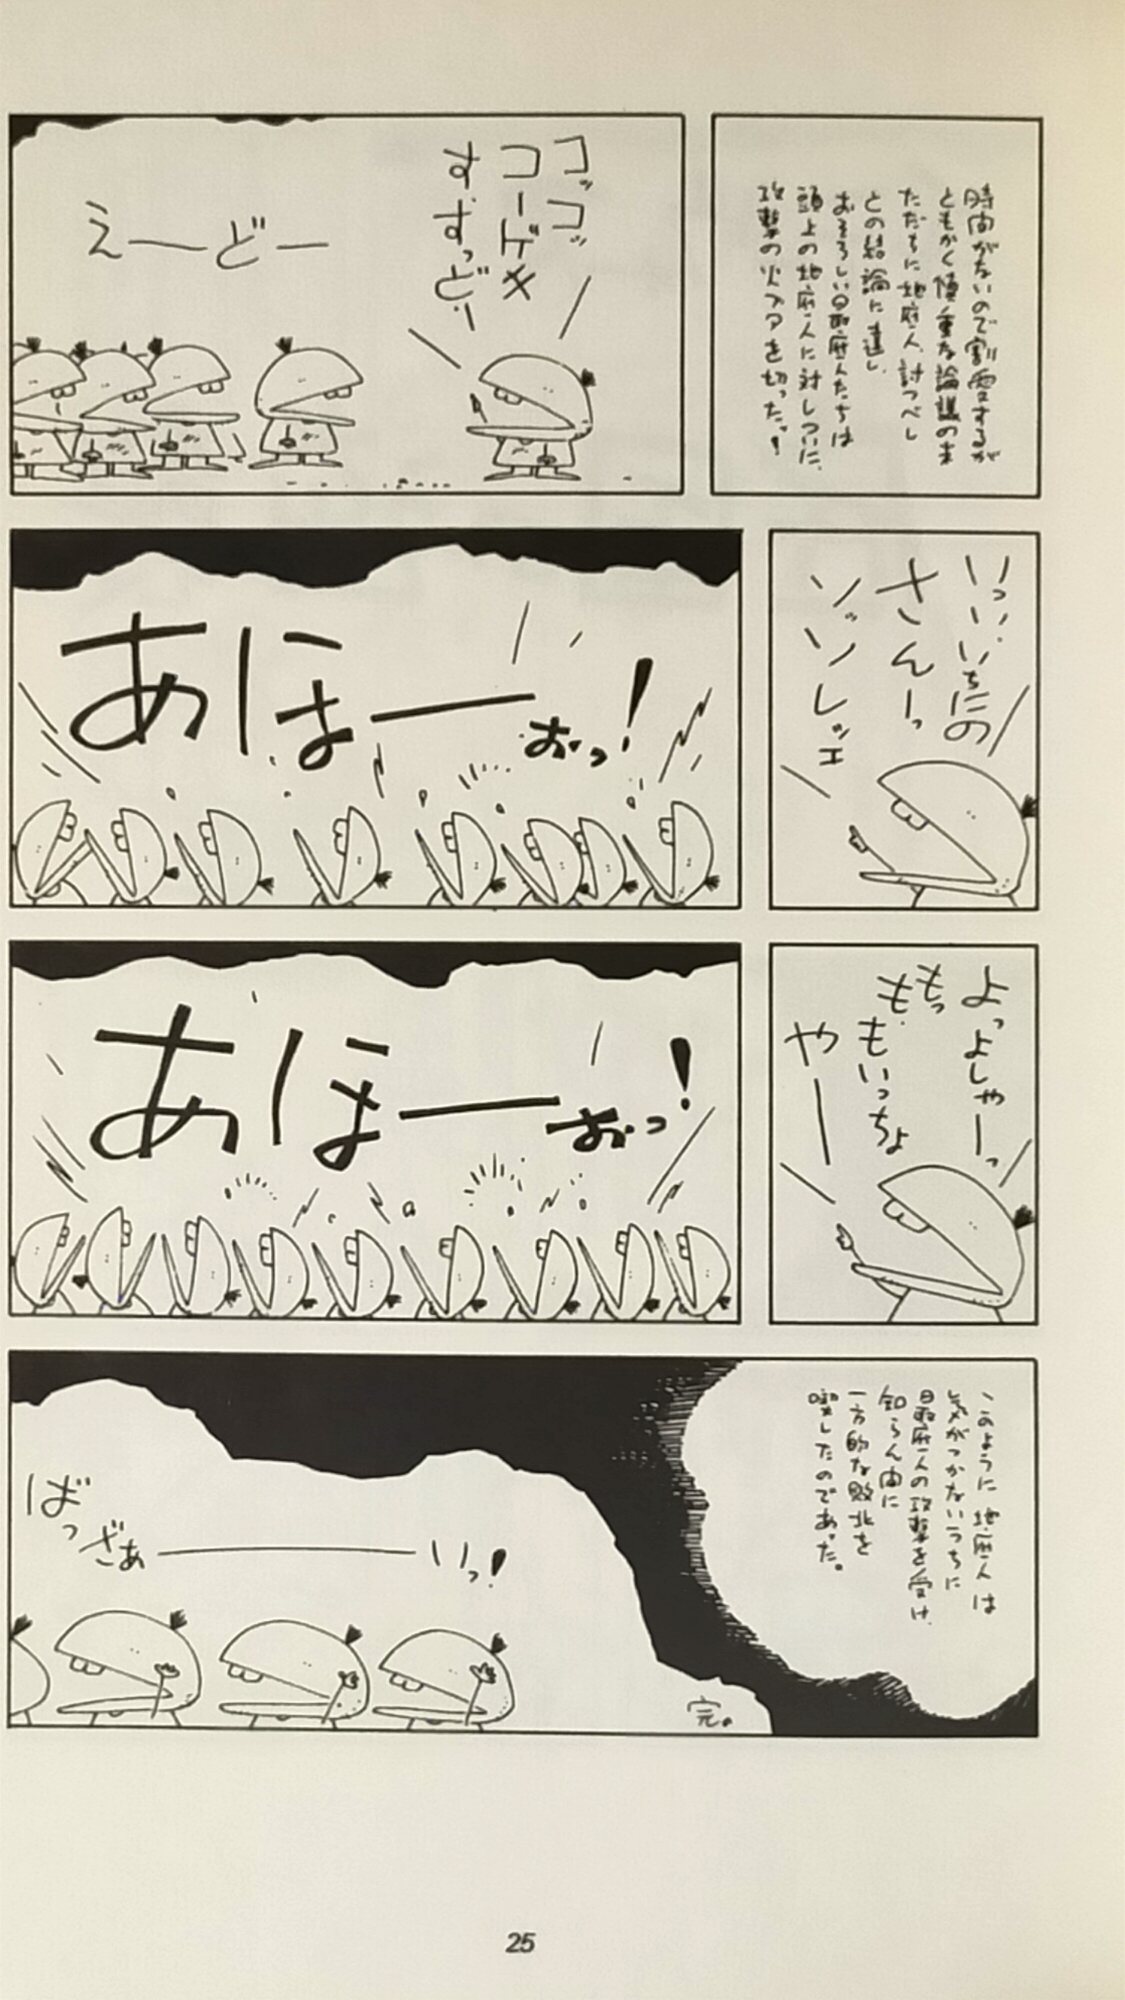 時間がないので割愛するが
ともかく慎重な論議の末
ただちに地底人、討つべし
との結論に達し、
おそろしい最底人たちは
頭上の地底人に対しついに、
攻撃の火ブタを切ったっ!
コッコッ
コーゲキ
す、すっどー
えーどー
いっい、いちにの
さんーっ
ソッソレッエ
あほーおっ!
よっよしゃーっ
もっ
も、
もいっちょ
やー
あほーおっ!
このように地底人は
気がつかないうちに
最底人の攻撃を受け、
知らん間に
一方的な敗北を
喫したのであった。
ばっざぁーいっ!
完。
25